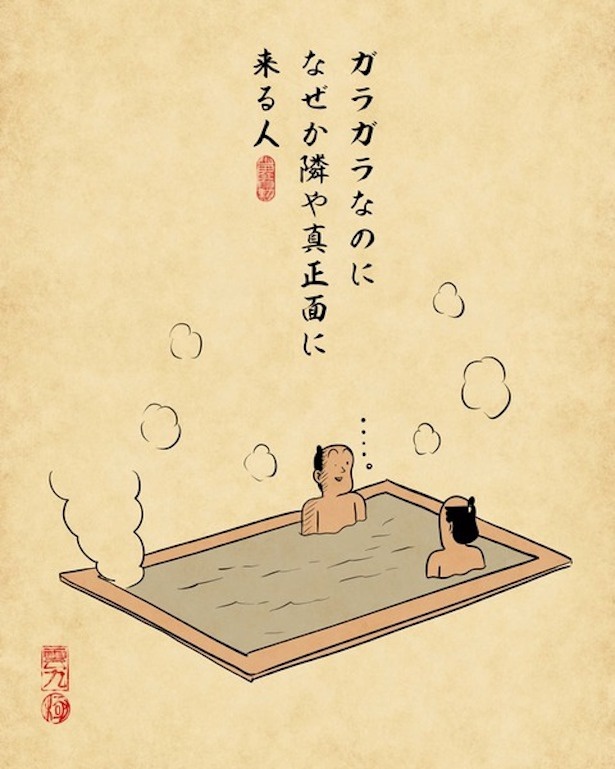 ガラガラなのに
なぜか隣や真正面に
来る人